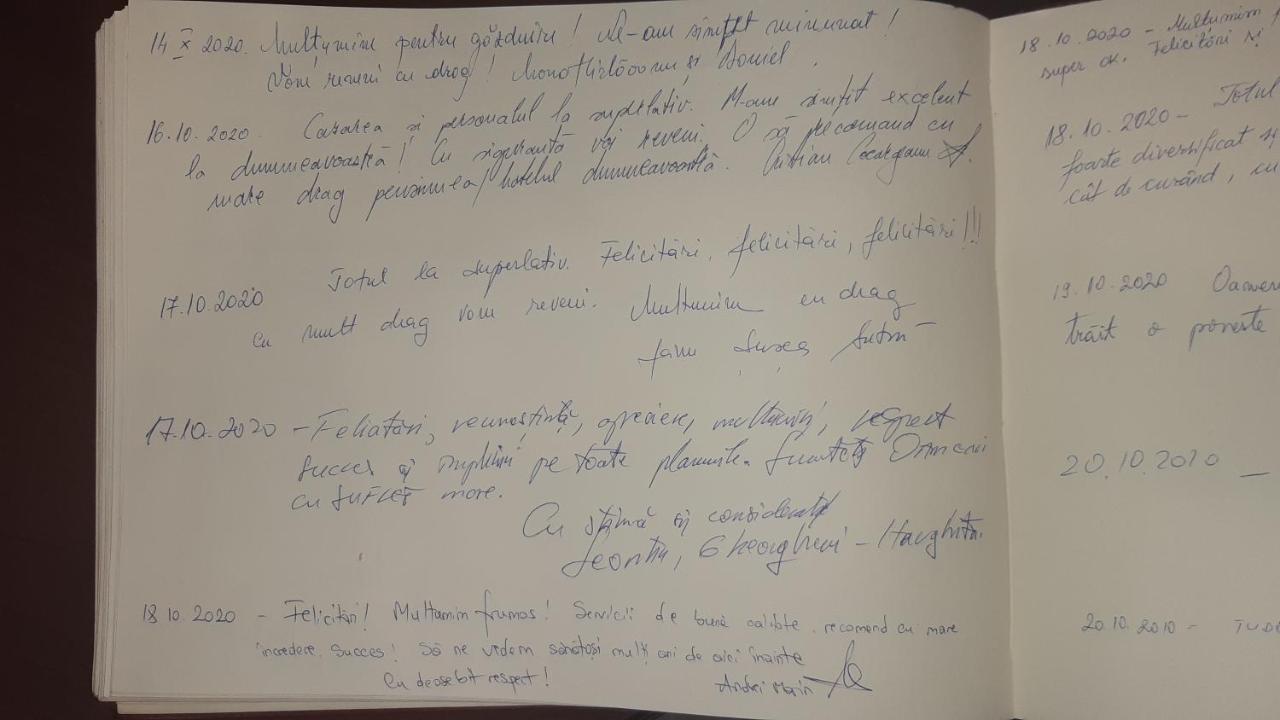 14 X 2020. Mulțumim pentru găzduire! Ne-am simțit minunat!
Vom reveni cu drag! și Daniel.
16.10.2020. Cazarea și personalul la superlativ. M-am simțit excelent
la dumneavoastră! Cu siguranță voi reveni. O să recomand cu
mare drag pensiunea/hotelul dumneavoastră. Cristian
17.10.2020 Totul la superlativ. Felicitări, felicitări, felicitări!!!
cu mult drag vom reveni. Multumim cu drag
fam
17.10.2020 - Felicitări, recunoștință, apreciere, mulțumiri, respect
succes și împliniri pe toate planurile. Sunteți Oameni
cu SUFLET mare.
Cu stimă și considerație
Leontin, Gheorgheni - Harghita.
18 10. 2020 - Felicitări! Multumim frumos! Servicii de bună calitate, recomand cu mare
încredere. Succes! Să ne vedem sănătoși mulți ani de aici înainte
Cu deosebit respect! Andrei Marin
18.10.2020 - Mulțumim
super ok. Felicitări și
18.10.2020 - Totul
foarte diversificat și
cât de curând, cu
19.10.2020 Oameni
trăit o poveste
20.10.2010 -
20.10.2010 - TUDO